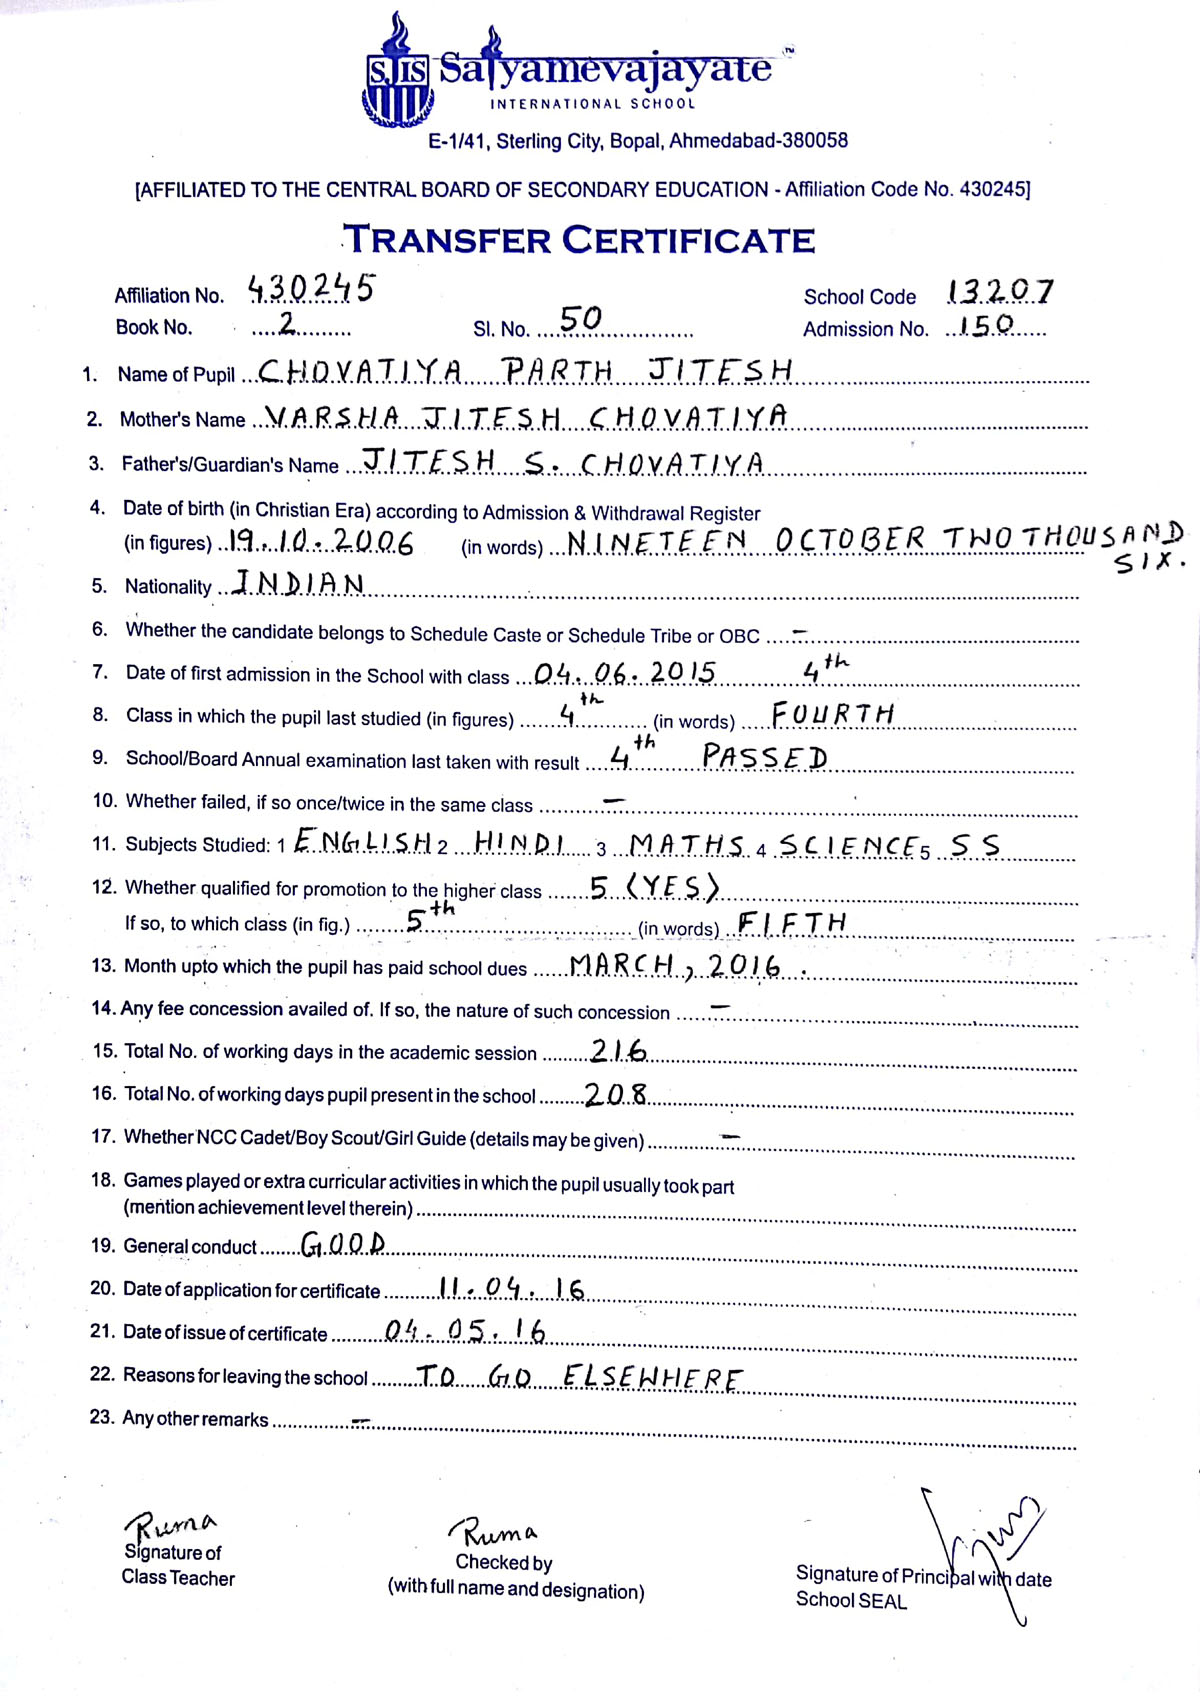 SJIS Satyamevajayate TM
INTERNATIONAL SCHOOL
E-1/41, Sterling City, Bopal, Ahmedabad-380058
[AFFILIATED TO THE CENTRAL BOARD OF SECONDARY EDUCATION - Affiliation Code No. 430245]
TRANSFER CERTIFICATE
Affiliation No. 430245 School Code 13207
Book No. 2 Sl. No. 50 Admission No. 150
1. Name of Pupil CHOVATIYA PARTH JITESH
2. Mother's Name VARSHA JITESH CHOVATIYA
3. Father's/Guardian's Name JITESH S. CHOVATIYA
4. Date of birth (in Christian Era) according to Admission & Withdrawal Register
(in figures) 19.10.2006 (in words) NINETEEN OCTOBER TWO THOUSAND
SIX.
5. Nationality INDIAN
6. Whether the candidate belongs to Schedule Caste or Schedule Tribe or OBC –
7. Date of first admission in the School with class 04.06.2015 4th
8. Class in which the pupil last studied (in figures) 4th (in words) FOURTH
9. School/Board Annual examination last taken with result 4th PASSED
10. Whether failed, if so once/twice in the same class –
11. Subjects Studied: 1 ENGLISH 2 HINDI 3 MATHS 4 SCIENCE 5 SS
12. Whether qualified for promotion to the higher class 5 (YES)
If so, to which class (in fig.) 5th (in words) FIFTH
13. Month upto which the pupil has paid school dues MARCH, 2016.
14. Any fee concession availed of. If so, the nature of such concession –
15. Total No. of working days in the academic session 216
16. Total No. of working days pupil present in the school 208
17. Whether NCC Cadet/Boy Scout/Girl Guide (details may be given) –
18. Games played or extra curricular activities in which the pupil usually took part
(mention achievement level therein)
19. General conduct GOOD
20. Date of application for certificate 11.04.16
21. Date of issue of certificate 04.05.16
22. Reasons for leaving the school TO GO ELSEWHERE
23. Any other remarks –
Ruma Ruma
Signature of Checked by Signature of Principal with date
Class Teacher (with full name and designation) School SEAL